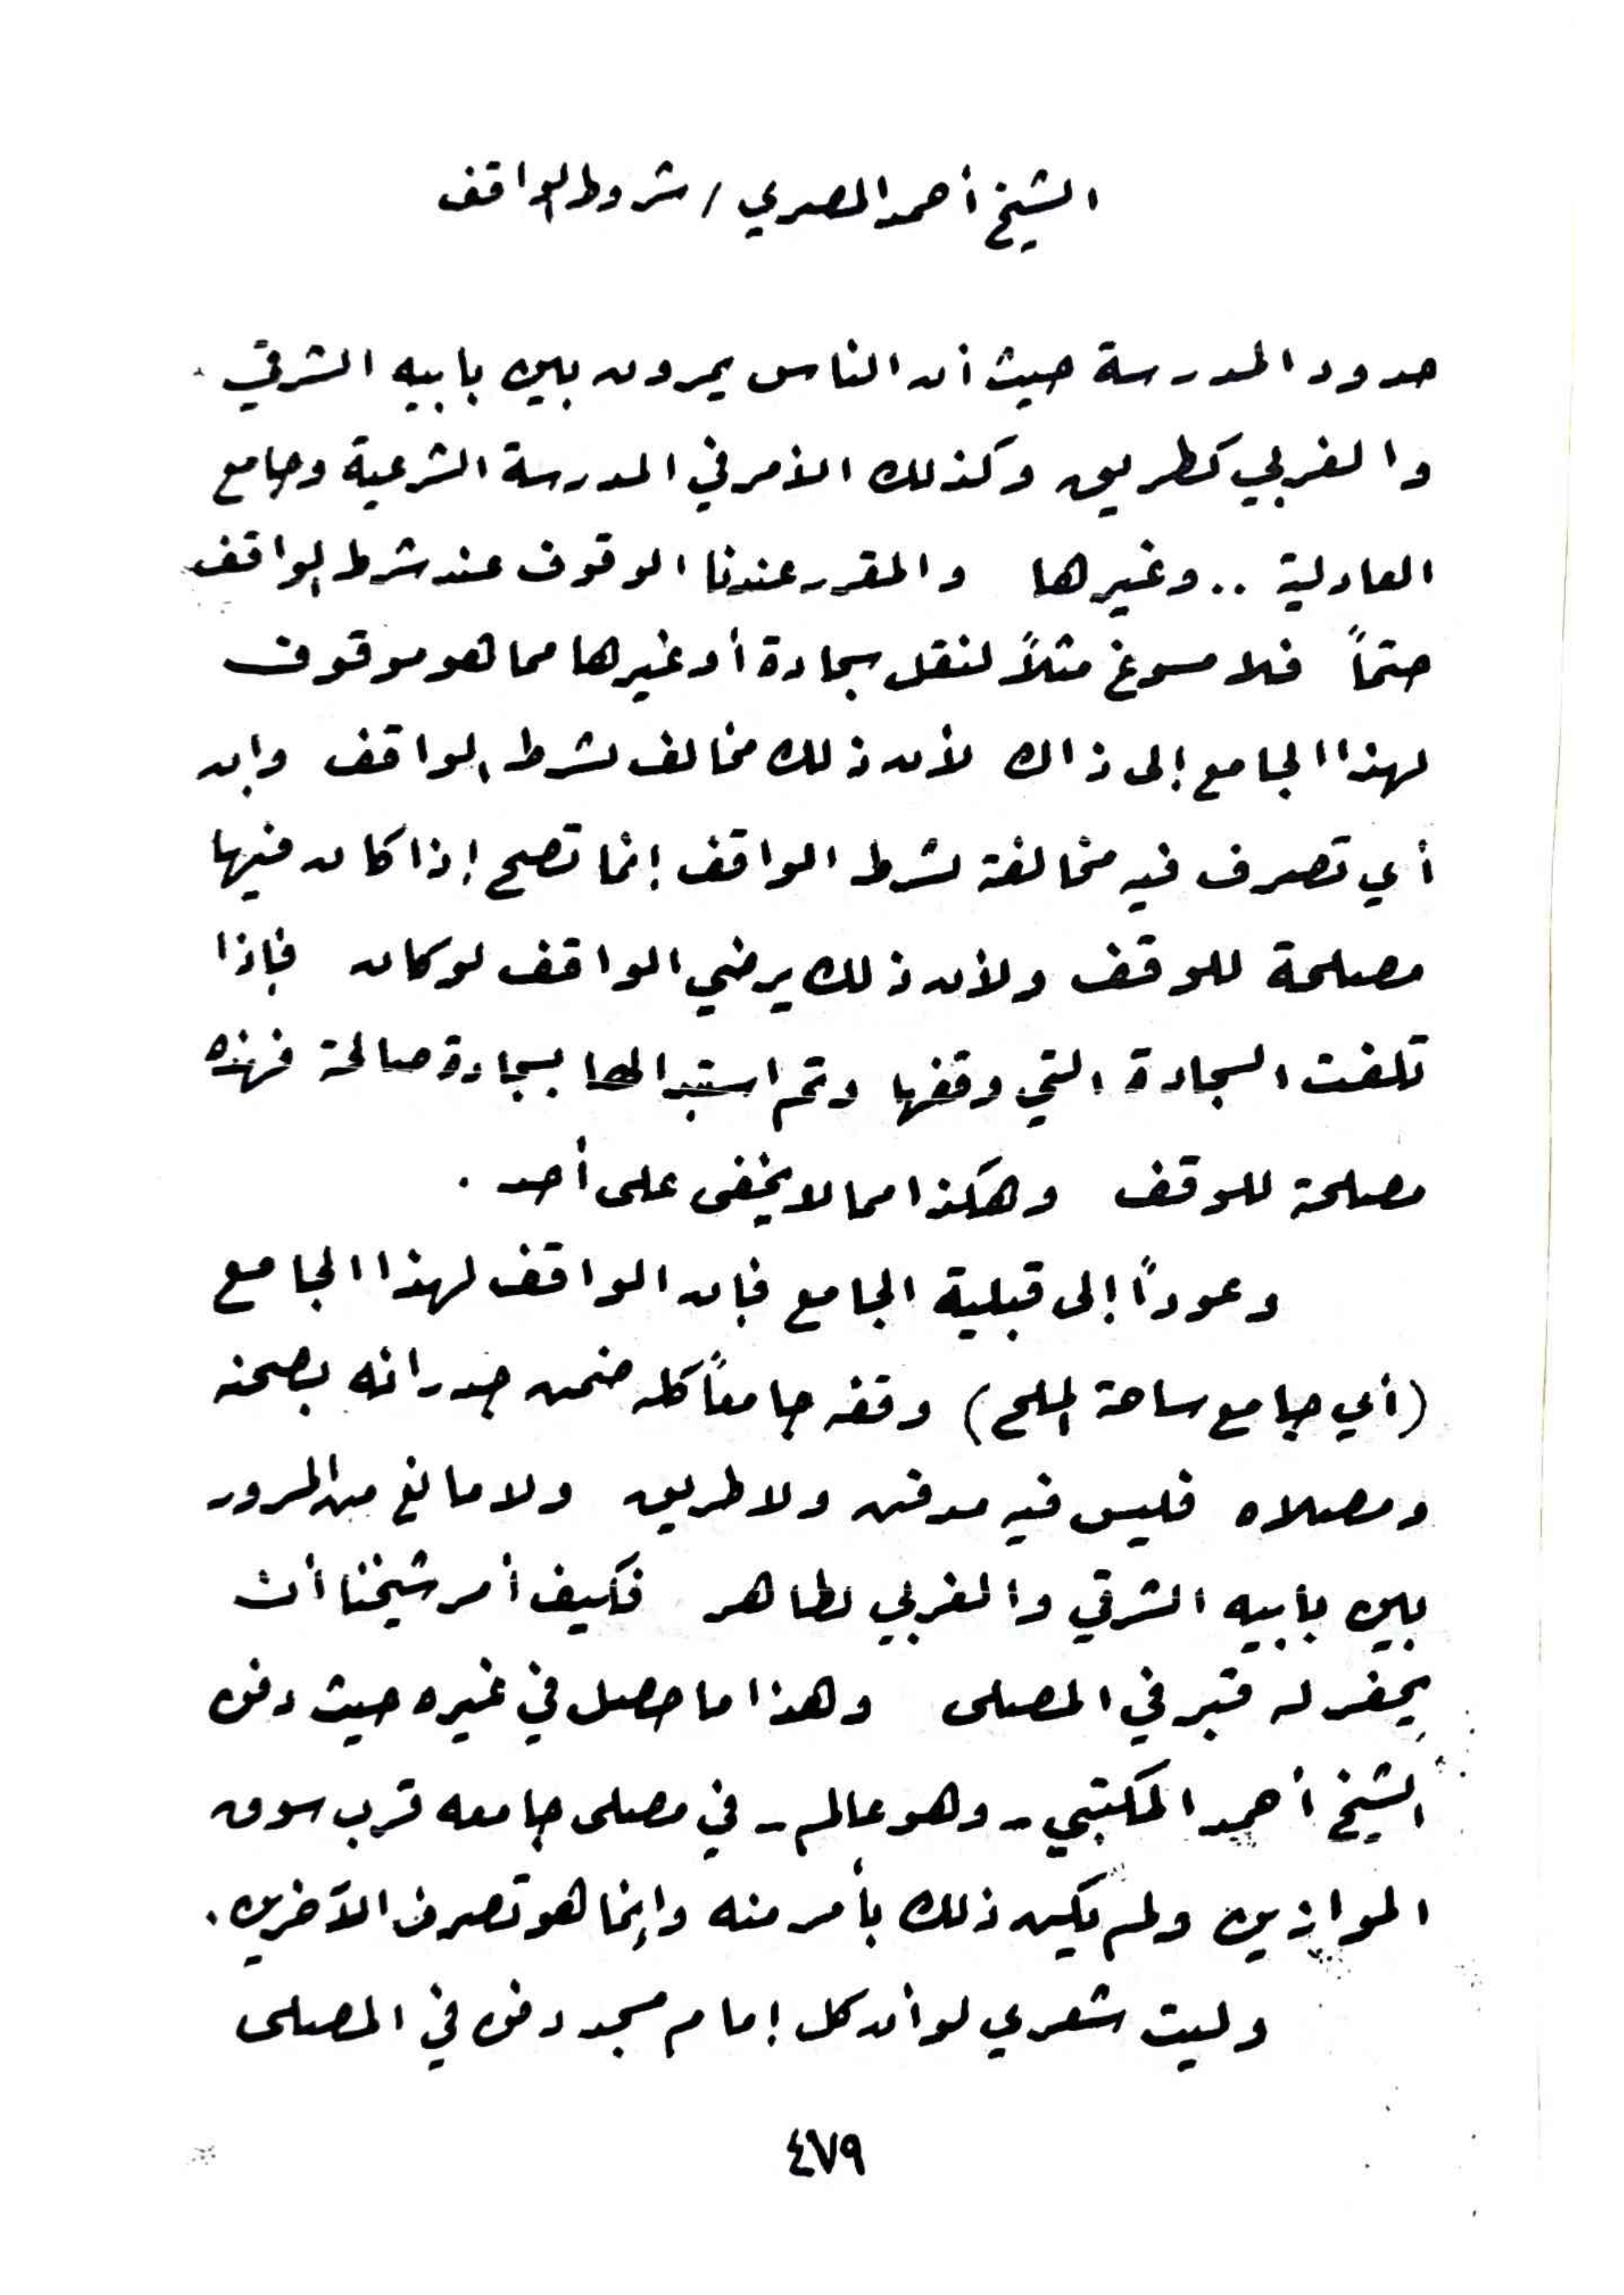 الشيخ أحمد المصري / شروط الواقف
حدود المدرسة حيث أن الناس يمرون بين بابيه الشرقي
والغربي كطريق وكذلك الأمر في المدرسة الشرعية وجامع
العادلية .. وغيرها والمقرر عندنا الوقوف عند شرط الواقف
حتماً فلا مسوغ مثلاً لنقل سجادة أو غيرها مما هو موقوف
لهذا الجامع إلى ذاك لأن ذلك مخالف لشرط الواقف وإن
أي تصرف فيه مخالفة لشرط الواقف إنما تصح إذا كان فيها
مصلحة للوقف ولأن ذلك يرضي الواقف لو كان فإذا
تلفت السجادة التي وقفها وتم استبدالها بسجادة صالحة فهذه
مصلحة للوقف وهكذا مما لا يخفى على أحد .
وعوداً إلى قبلية الجامع فإن الواقف لهذا الجامع
(أي جامع ساحة الملح) وقفه جامعاً كله ضمن جدرانه بصحنه
ومصلاه فليس فيه مدفن ولا طريق ولا مانع من المرور
بين بابيه الشرقي والغربي لطاهر فكيف أمر شيخنا أن
يحفر له قبر في المصلى وهذا ما حصل في غيره حيث دفن
الشيخ أحمد المكتبي - وهو عالم - في مصلى جامعه قرب سوق
الموازين ولم يكن ذلك بأمر منه وإنما هو تصرف الآخرين .
وليت شعري لو أن كل إمام مسجد دفن في المصلى
٤٧٩